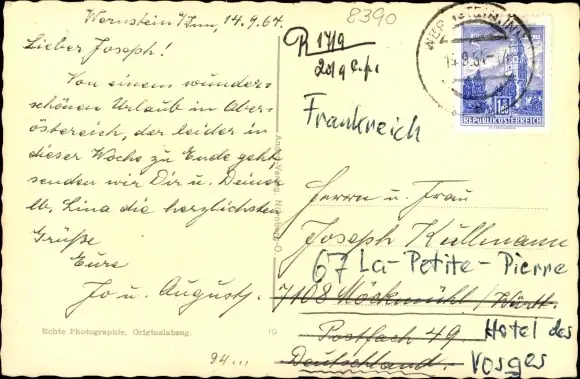 Wernstein / Inn, 14.9.64.
Lieber Joseph!
Von einem wunder-
schönen Urlaub in Ober-
österreich, der leider in
dieser Woche zu Ende geht,
senden wir Dir u. Deiner
lb. Lina die herzlichsten
Grüße
Eure
Jo u. August.
Echte Photographie, Originalabzug.
19
94
8390
R 17/9
20/9
Frankreich
REPUBLIK ÖSTERREICH
Herrn u. Frau
Joseph Kullmann
67 La-Petite-Pierre
7108 Möckmühl / Württ.
Postfach 49 Hotel des
Deutschland. Vosges